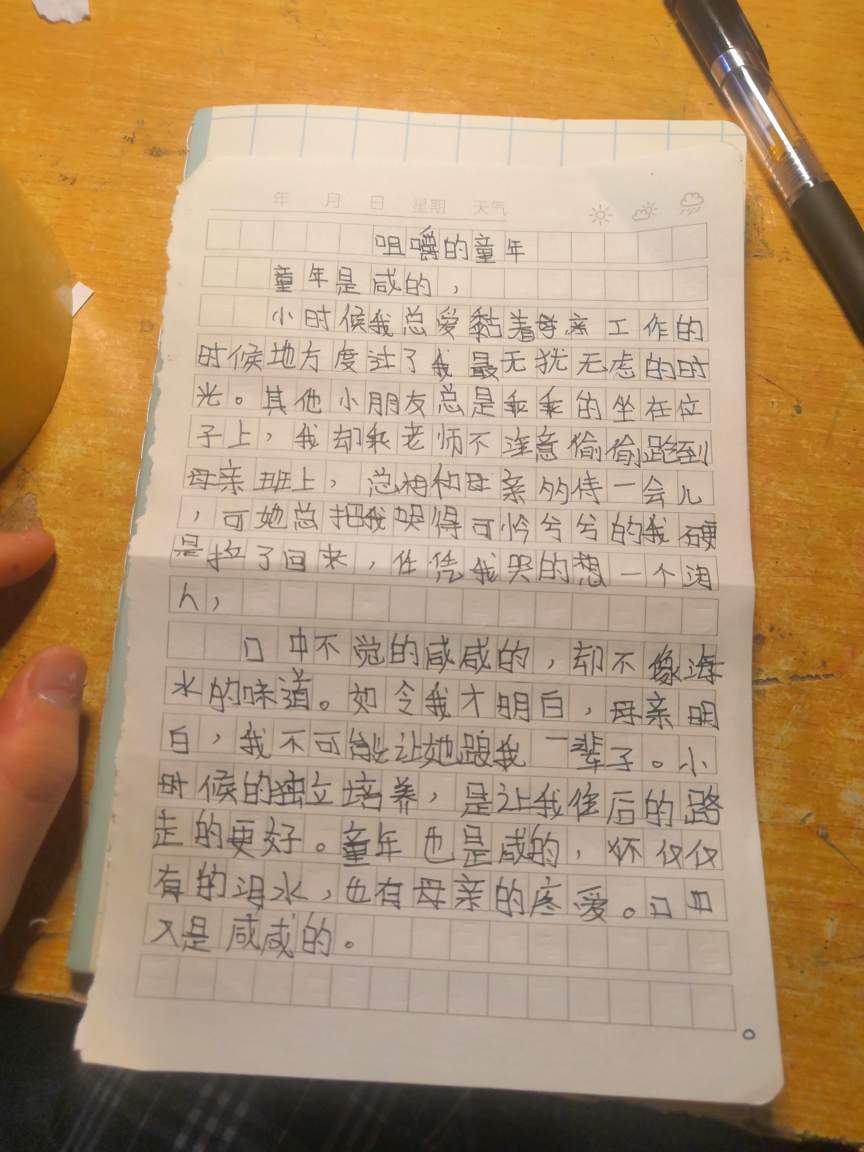 年 月 日 星期 天气
咀嚼的童年
童年是咸的，
小时候我总爱黏着母亲工作的
时候地方度过了我最无犹无虑的时
光。其他小朋友总是乖乖的坐在位
子上，我却乘老师不注意偷偷跑到
母亲班上，总想和母亲多待一会儿
，可她总把我哭得可怜兮兮的我硬
是拉了回来，任凭我哭的想一个泪
人，
口中不觉的咸咸的，却不像海
水的味道。如今我才明白，母亲明
白，我不可能让她跟我一辈子。小
时候的独立培养，是让我往后的路
走的更好。童年也是咸的，不仅仅
有的泪水，也有母亲的疼爱。口中
又是咸咸的。